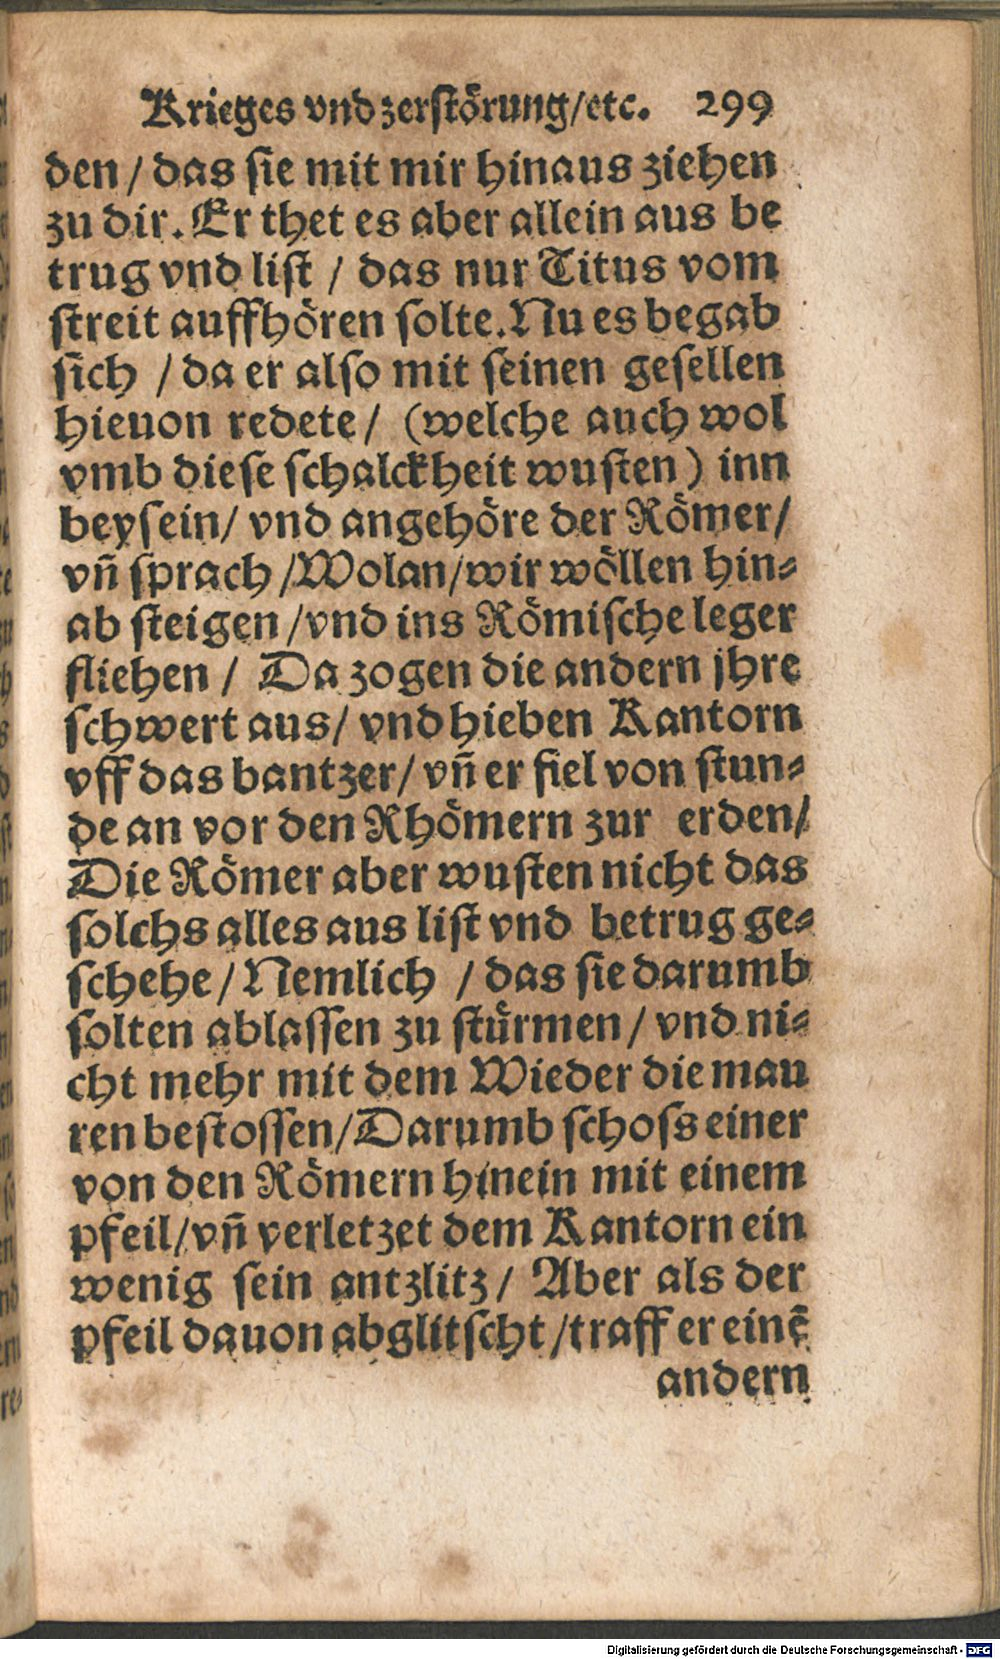 Krieges vnd zerstörung/etc. 299
den / das sie mit mir hinaus ziehen
zu dir. Er thet es aber allein aus be
trug vnd list / das nur Titus vom
streit auffhören solte. Nu es begab
sich / da er also mit seinen gesellen
hieuon redete / (welche auch wol
vmb diese schalckheit wusten) inn
beysein / vnd angehöre der Römer /
vñ sprach / Wolan / wir wöllen hin⸗
ab steigen / vnd ins Römische leger
fliehen / Da zogen die andern jhre
schwert aus / vnd hieben Kantorn
vff das bantzer / vñ er fiel von stun⸗
de an vor den Rhömern zur erden /
Die Römer aber wusten nicht das
solchs alles aus list vnd betrug ge⸗
schehe / Nemlich / das sie darumb
solten ablassen zu stürmen / vnd ni⸗
cht mehr mit dem Wieder die mau
ren bestossen / Darumb schoss einer
von den Römern hinein mit einem
pfeil / vñ verletzet dem Kantorn ein
wenig sein antzlitz / Aber als der
pfeil dauon abglitscht / traff er einẽ
andern
Digitalisierung gefördert durch die Deutsche Forschungsgemeinschaft - DFG